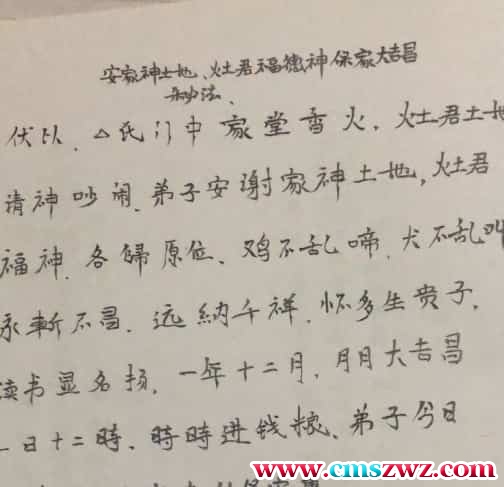 安家神土地、灶君福德神保家大吉昌
妙法、
伏以、△氏门中家堂香火、灶君土地
请神吵闹、弟子安谢家神土地,灶君
福神、各歸原位、鸡不乱啼、犬不乱叫
永斬不昌、远納千祥、怀多生贵子、
读书显名扬、一年十二月、月月大吉昌
一日十二時、時時进钱粮、弟子今日
www.cmszwz.com